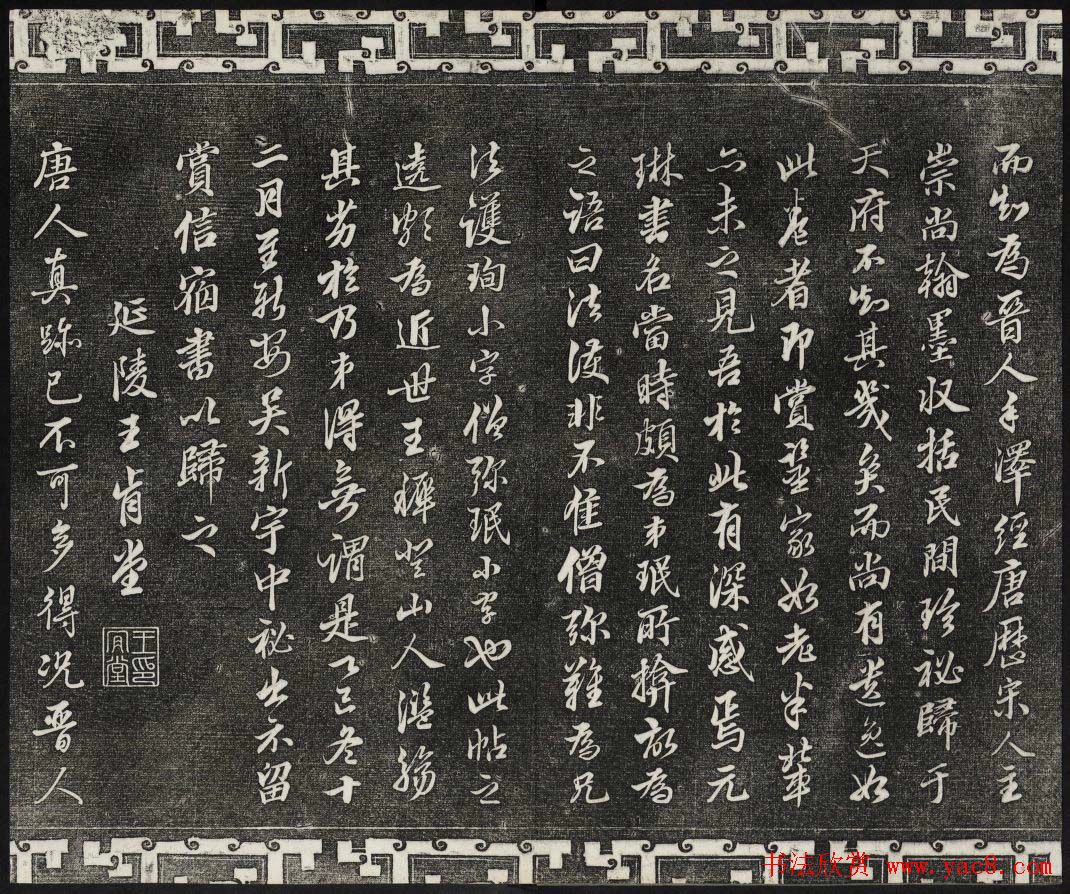 而知為晉人手澤經唐歷宋人主
崇尚翰墨收括民間珍祕歸于
天府不知其幾矣而尚有遺逸如
此卷者即賞鑒家如老米輩
亦未之見吾於此有深感焉元
琳書名當時頗為弟珉所揜故為
之語曰法護非不佳僧彌難為兄
法護珣小字僧彌珉小字也此帖之
遒媚為近世王穉登山人濫觴
其劣於乃弟得無謂是乎己冬十
二月至新安吳新宇中祕出示留
賞信宿書以歸之
延陵王肯堂
王肯堂印
唐人真跡已不可多得況晉人
书法欣赏 www.yac8.com